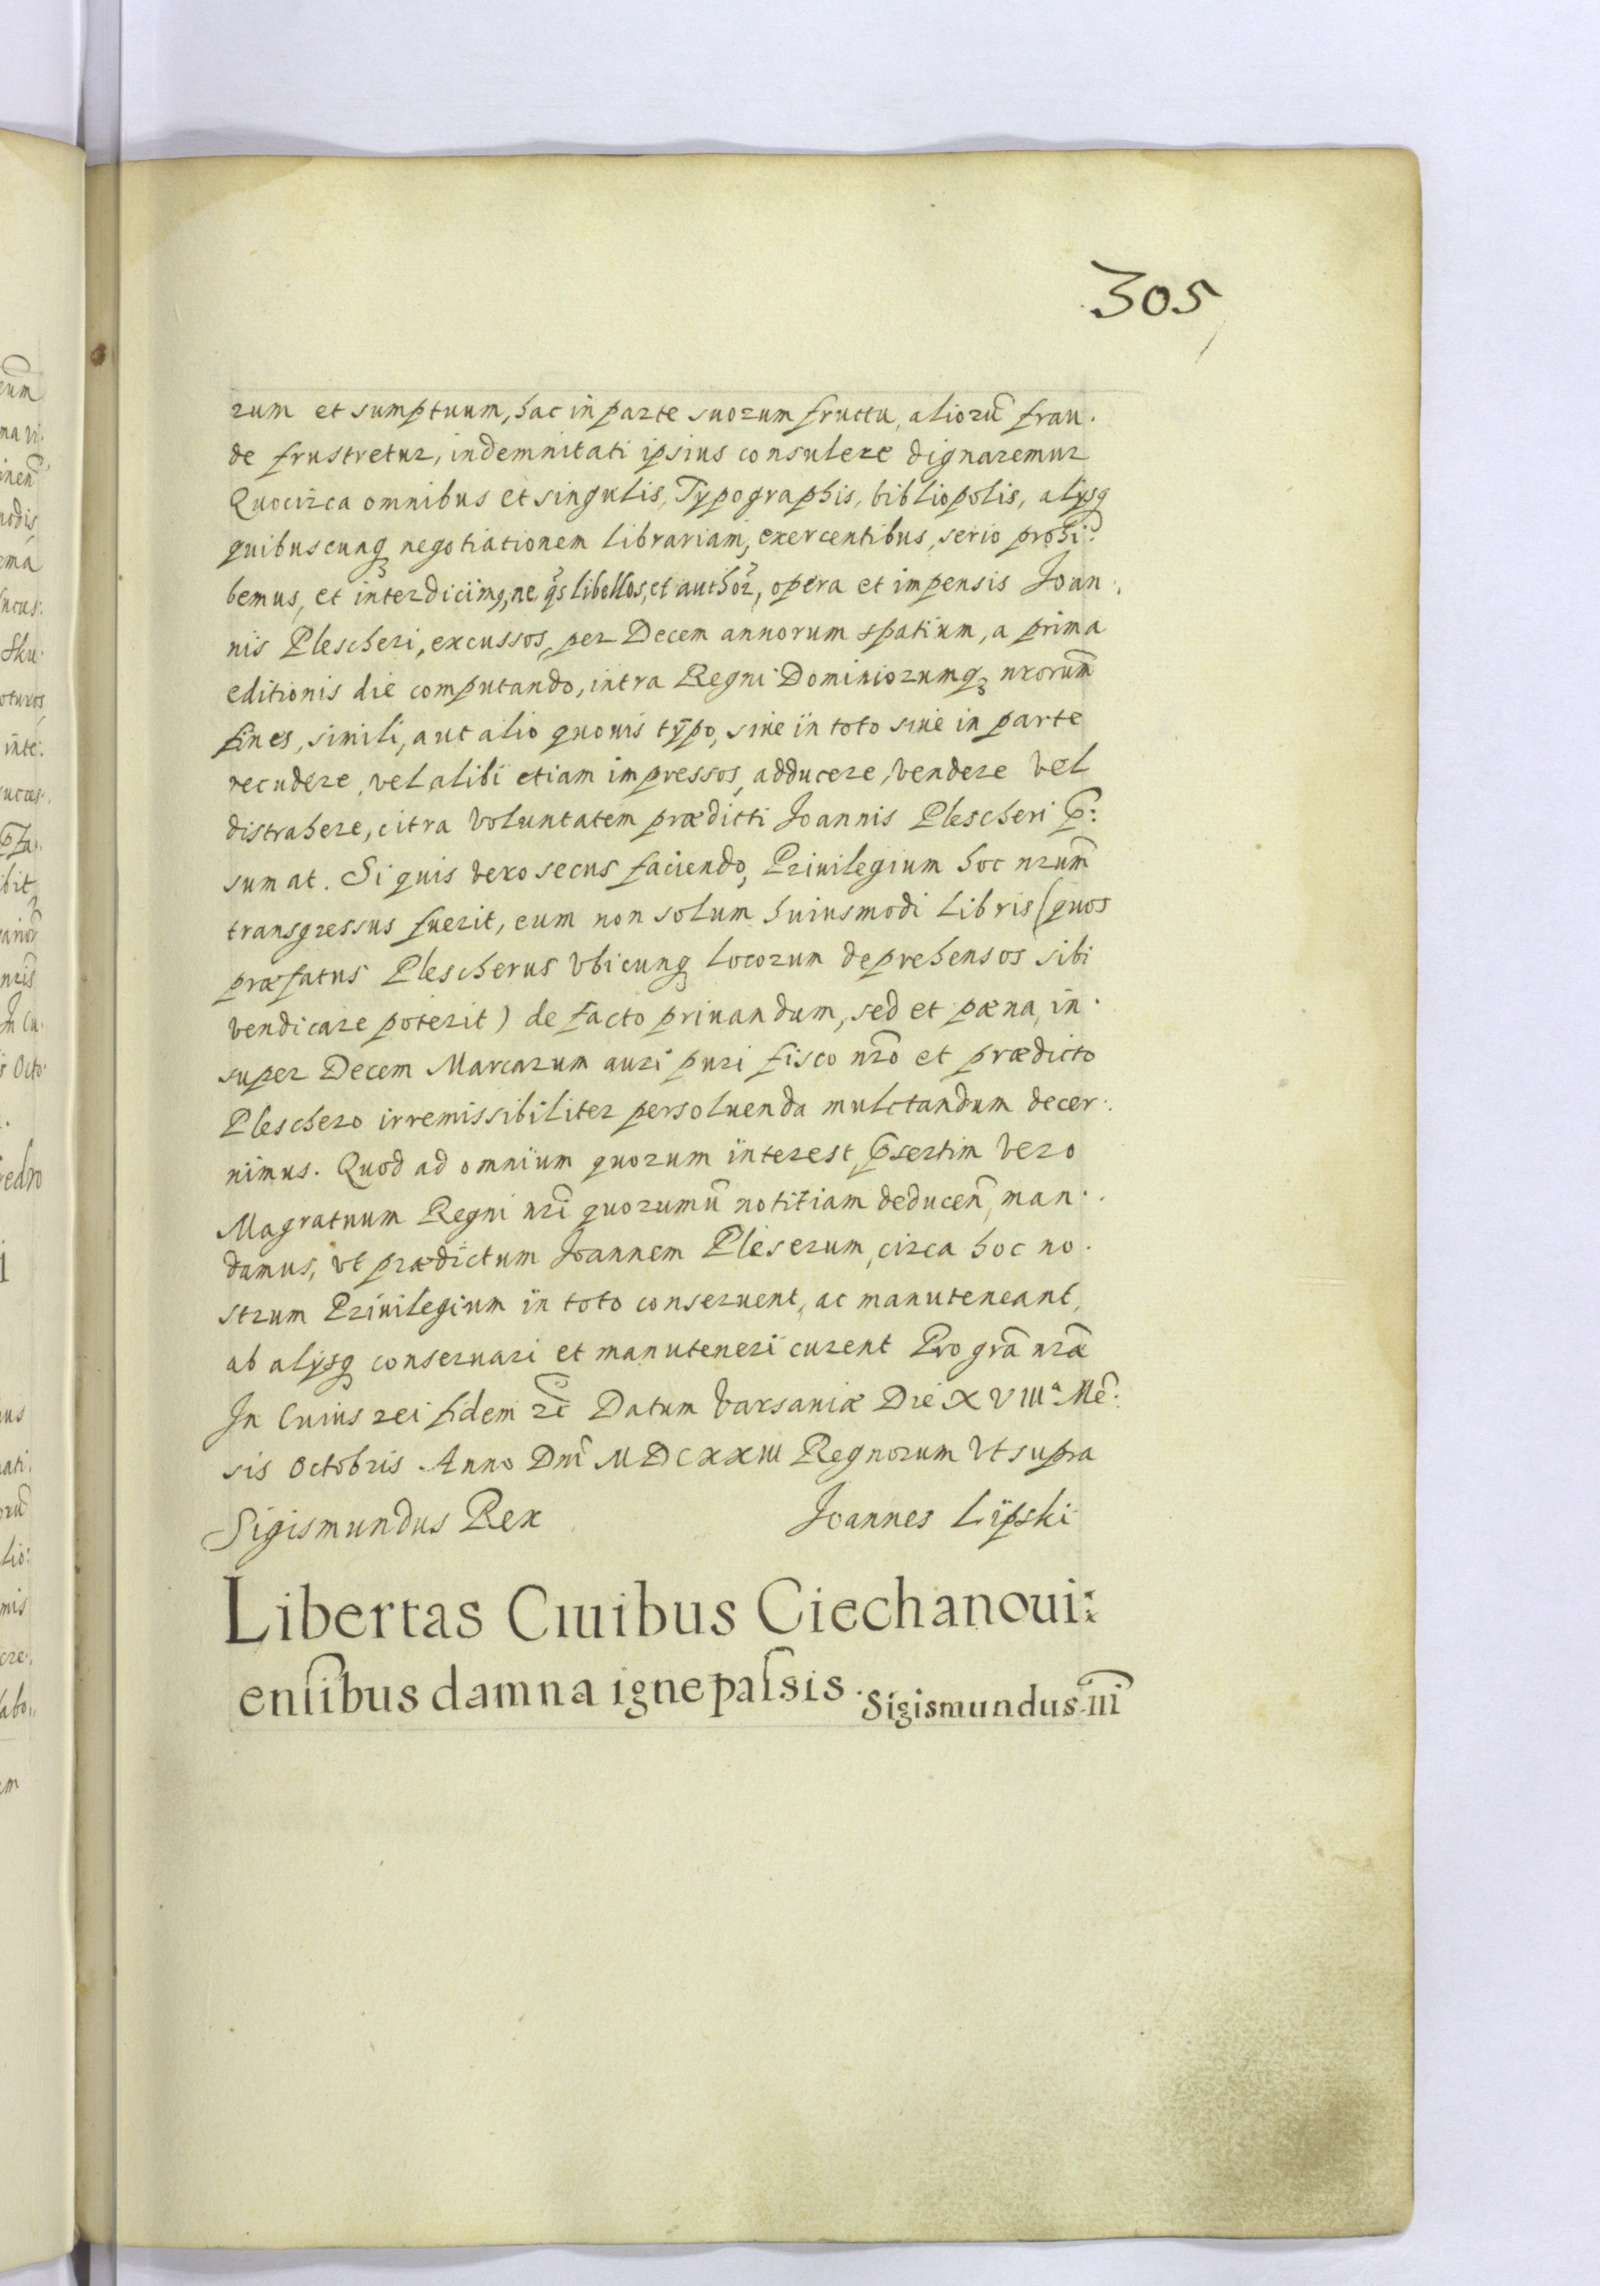 305
rum et sumptuum, hac in parte suorum fructu, aliorũ frau.
de frustretur, indemnitati ipsius consulere dignaremur
Quocirca omnibus et singulis, Typographis, bibliopolis, alysq
quibuscunq negotiationem librariam, exercentibus, serio prohi:
bemus, et interdicimq, ne qs libellos, et author, opera et impensis Joan.
nis Plescheri, excussos, per Decem annorum spatium, a prima
editionis die computando, intra Regni Dominiorumq nrorum̃
fines, simili, aut alio quouis typo, siue in toto siue in parte
recudere, vel alibi etiam impressos, adducere, vendere vel
distrahere, citra voluntatem prædicti Joannis Plescheri p̃:
sumat. Si quis vero secus faciendo, Priuilegium hoc nrum̃
transgressus fuerit, eum non solum huiusmodi libris (quos
præfatus Plescherus Vbicunq locorum deprehensos sibi
vendicare poterit) de facto priuandum, sed et pæna, in.
super Decem Marcarum auri puri fisco nr̃o et prædicto
Pleschero irremissibiliter persoluenda mulctandum decer.
nimus. Quod ad omnium quorum interest, p̃sertim vero
Magratuum Regni nrĩ quorumũ notitiam deducen̄, man.
damus, vt prædictum Joannem Pleserum, circa hoc no.
strum Priuilegium in toto conseruent, ac manuteneant,
ab alysq conseruari et manuteneri curent Pro grã nrã
In Cuius rei fidem rc̃ Datum Varsauiæ Die XVIIIa Mẽ:
sis Octobris Anno Dnĩ MDCXXIII Regnorum Vt supra
Sigismundus Rex Joannes Lipski
Libertas Ciuibus Ciechanoui:
ensibus damna igne passis. Sigismundus III